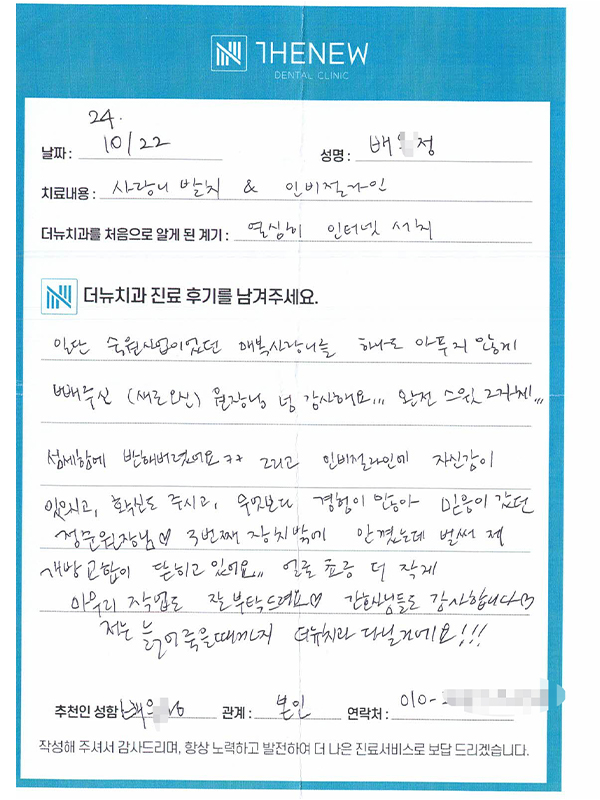 THENEW
DENTAL CLINIC
24.
날짜 : 10/22 성명 : 배 정
치료내용 : 사랑니 발치 & 인비절라인
더뉴치과를 처음으로 알게 된 계기 : 열심히 인터넷 서치
더뉴치과 진료 후기를 남겨주세요.
일단 숙원사업이었던 매복사랑니를 하나도 아프지 않게
빼주신 (새로오신) 원장님 넘 감사해요... 완전 스윗 그자체...
섬세함에 반해버렸어요ㅋㅋ 그리고 인비절라인에 자신감이
있으시고, 확신도 주시고, 무엇보다 경험이 많아 믿음이 갔던
정문원장님♡ 3번째 장치밖에 안꼈는데 벌써 제
개방교합이 닫히고 있어요... 얼른 조금 더 작게
마무리 작업도 잘 부탁드려요♡ 간호사님들도 감사합니다♡
저는 늙어죽을때까지 더뉴치과 다닐거예요!!!
추천인 성함 : 관계 : 본인 연락처 : 010-
작성해 주셔서 감사드리며, 항상 노력하고 발전하여 더 나은 진료서비스로 보답 드리겠습니다.